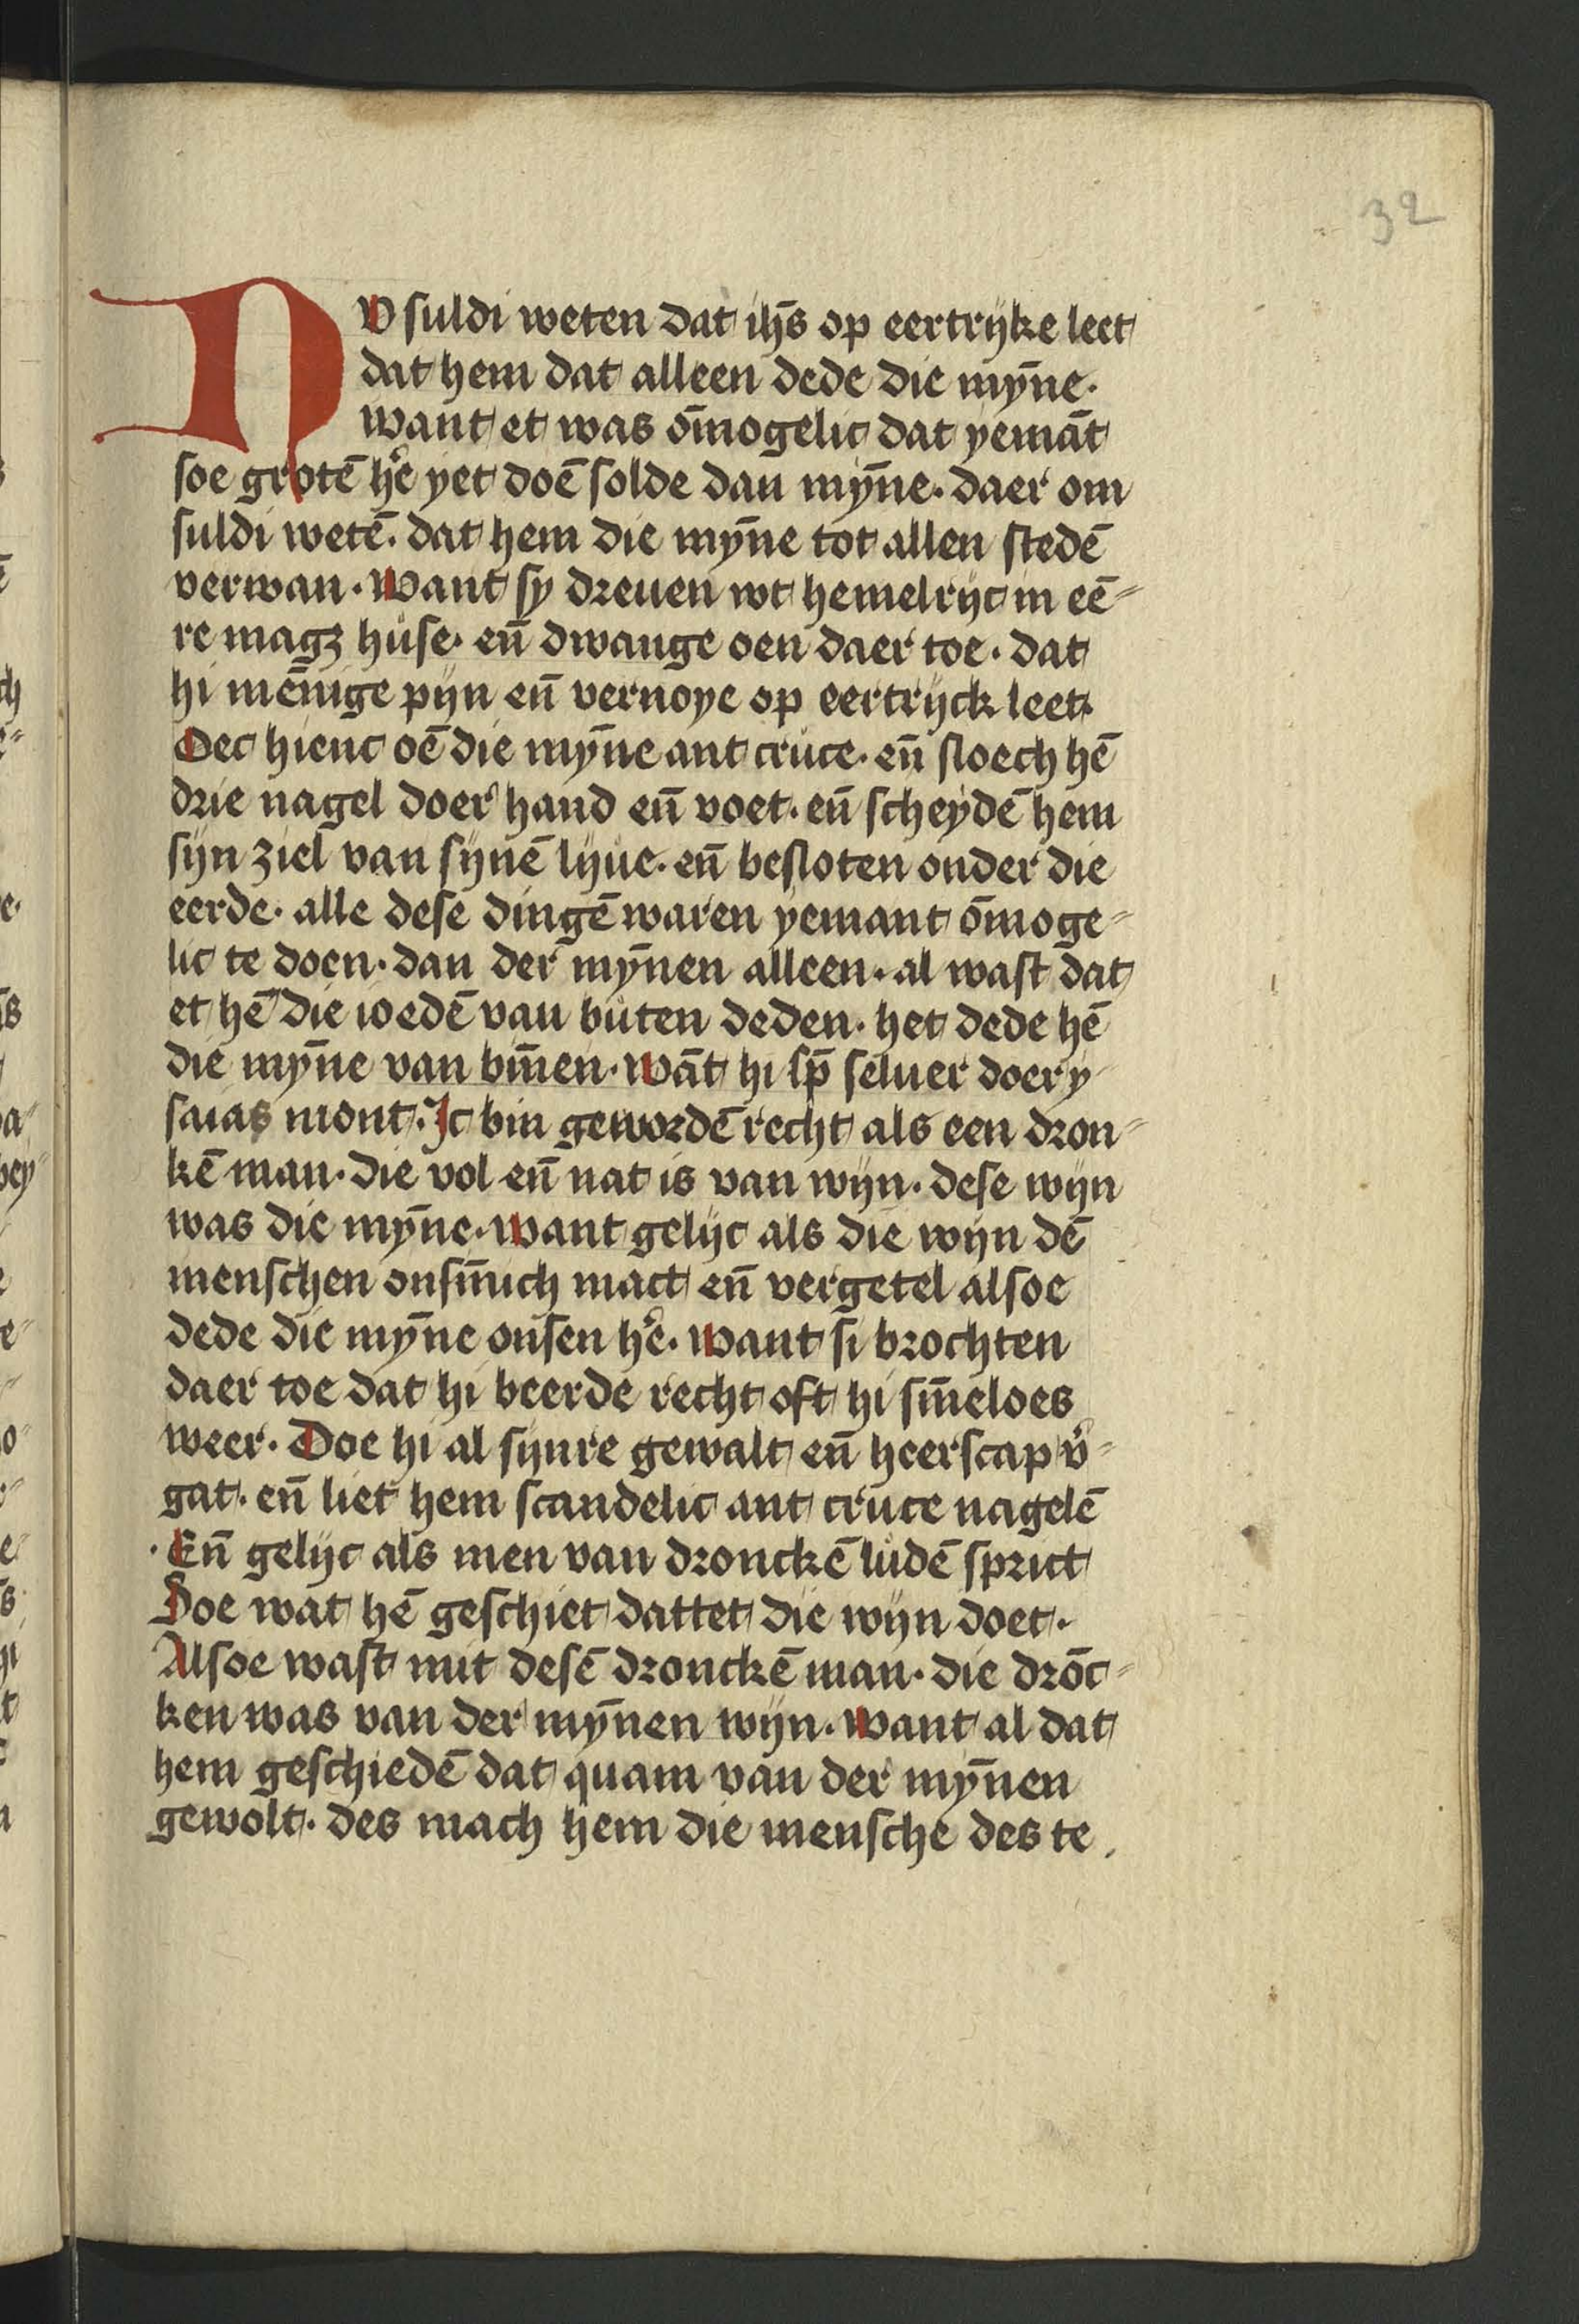 32
NV suldi weten dat ih̄s op eertrijke leet
dat hem dat alleen dede die mȳne.
want et was ōmogelic dat yemāt
soe grotē he͛ yet doē solde dan mȳne. daer om
suldi wetē. dat hem die mȳne tot allen stedē
verwan. Want sy dreuen wt hemelrijc in eē-
re magꝫ huse. en̄ dwange oen daer toe. dat
hi mēnige pijn en̄ vernoye op eertrijck leet.
Oec hienc oē die mȳne ant cruce. en̄ sloech hē
drie nagel doer hand en̄ voet. en̄ scheydē hem
sijn ziel van sijnē lijue. en̄ besloten onder die
eerde. alle dese dingē waren yemant ōmoge-
lic te doen. dan der mȳnen alleen. al wast dat
et hē die ioedē van buten deden. het dede hē
die mȳne van bīnen. Wāt hi sp̄ seluer doer y-
saias mont. Ic bin gewordē recht als een dron-
kē man. die vol en̄ nat is van wijn. dese wijn
was die mȳne. Want gelijc als die wijn dē
menschen onsīnich mact en̄ vergetel alsoe
dede die mȳne onsen he͛. Want si brochten
daer toe dat hi beerde recht oft hi sīneloes
weer. Doe hi al sijnre gewalt en̄ heerscap v͛-
gat. en̄ liet hem scandelic ant cruce nagelē
. En̄ gelijc als men van dronckē ludē sprict
Soe wat hē geschiet dattet die wijn doet.
Alsoe wast mit desē dronckē man. die drōc-
ken was van der mȳnen wijn. Want al dat
hem geschiedē dat quam van der mȳnen
gewolt. des mach hem die mensche des te